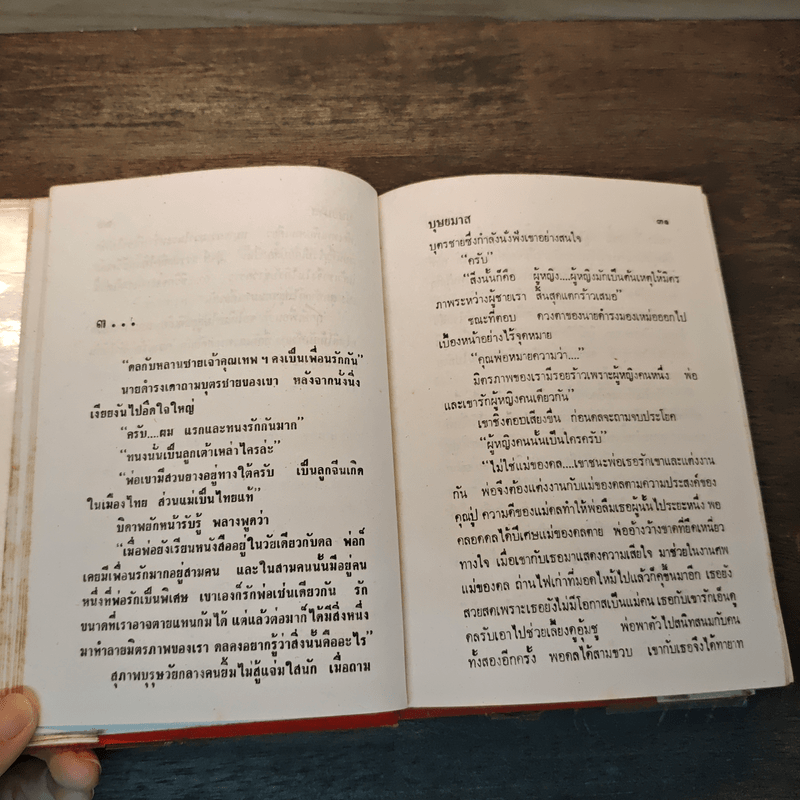 ๓...
“ดลกับหลานชายเจ้าคุณเทพ ฯ คงเป็นเพื่อนรักกัน”
นายดำรงเดาถามบุตรชายของเขา หลังจากนั่งนิ่ง
เงียยงันไปอึดใจใหญ่
“ครับ....ผม แรกและทนงรักกันมาก”
“ทนงนั่นเป็นลูกเต้าเหล่าใครล่ะ”
“พ่อเขามีสวนยางอยู่ทางใต้ครับ เป็นลูกจีนเกิด
ในเมืองไทย ส่วนแม่เป็นไทยแท้”
บิดาพยักหน้ารับรู้ พลางพูดว่า
“เมื่อพ่อยังเรียนหนังสืออยู่ในวัยเดียวกับดล พ่อก็
เคยมีเพื่อนรักมากอยู่สามคน และในสามคนนั้นมีอยู่คน
หนึ่งที่พ่อรักเป็นพิเศษ เขาเองก็รักพ่อเช่นเดียวกัน รัก
ขนาดที่เราอาจตายแทนกันได้ แต่แล้วต่อมาก็ได้มีสิ่งหนึ่ง
มาทำลายมิตรภาพของเรา ดลลองอยากรู้ว่าสิ่งนั้นคืออะไร”
สุภาพบุรุษวัยกลางคนยิ้มไม่สู้แจ่มใสนัก เมื่อถาม
บุษยมาส ๓๑
บุตรชายซึ่งกำลังนั่งฟังเขาอย่างสนใจ
“ครับ”
“สิ่งนั้นก็คือ ผู้หญิง....ผู้หญิงมักเป็นต้นเหตุให้มิตร
ภาพระหว่างผู้ชายเรา สิ้นสุดแตกร้าวเสมอ”
ขณะที่ตอบ ดวงตาของนายดำรงมองเหม่อออกไป
เบื้องหน้าอย่างไร้จุดหมาย
“คุณพ่อหมายความว่า....”
มิตรภาพของเรามีรอยร้าวเพราะผู้หญิงคนหนึ่ง พ่อ
และเขารักผู้หญิงคนเดียวกัน”
เขาชิงตอบเสียงขื่น ก่อนดลจะถามจบประโยค
“ผู้หญิงคนนั้นเป็นใครครับ”
“ไม่ใช่แม่ของดล....เขาชนะพ่อเธอรักเขาและแต่งงาน
กัน พ่อจึงต้องแต่งงานกับแม่ของดลตามความประสงค์ของ
คุณปู่ ความดีของแม่ดลทำให้พ่อลืมเธอผู้นั้นไประยะหนึ่ง พอ
คลอดดลได้ปีเศษแม่ของดลตาย พ่ออ้างว้างขาดที่ยึดเหนี่ยว
ทางใจ เมื่อเขากับเธอมาแสดงความเสียใจ มาช่วยในงานศพ
แม่ของดล ถ่านไฟเก่าที่มอดไหม้ไปแล้วก็คุขึ้นมาอีก เธอยัง
สวยสดเพราะเธอยังไม่มีโอกาสเป็นแม่คน เธอกับเขารักเอ็นดู
ดลรับเอาไปช่วยเลี้ยงดูอุ้มชู พ่อพาตัวไปสนิทสนมกับคน
ทั้งสองอีกครั้ง พอดลได้สามขวบ เขากับเธอจึงได้ทายาท